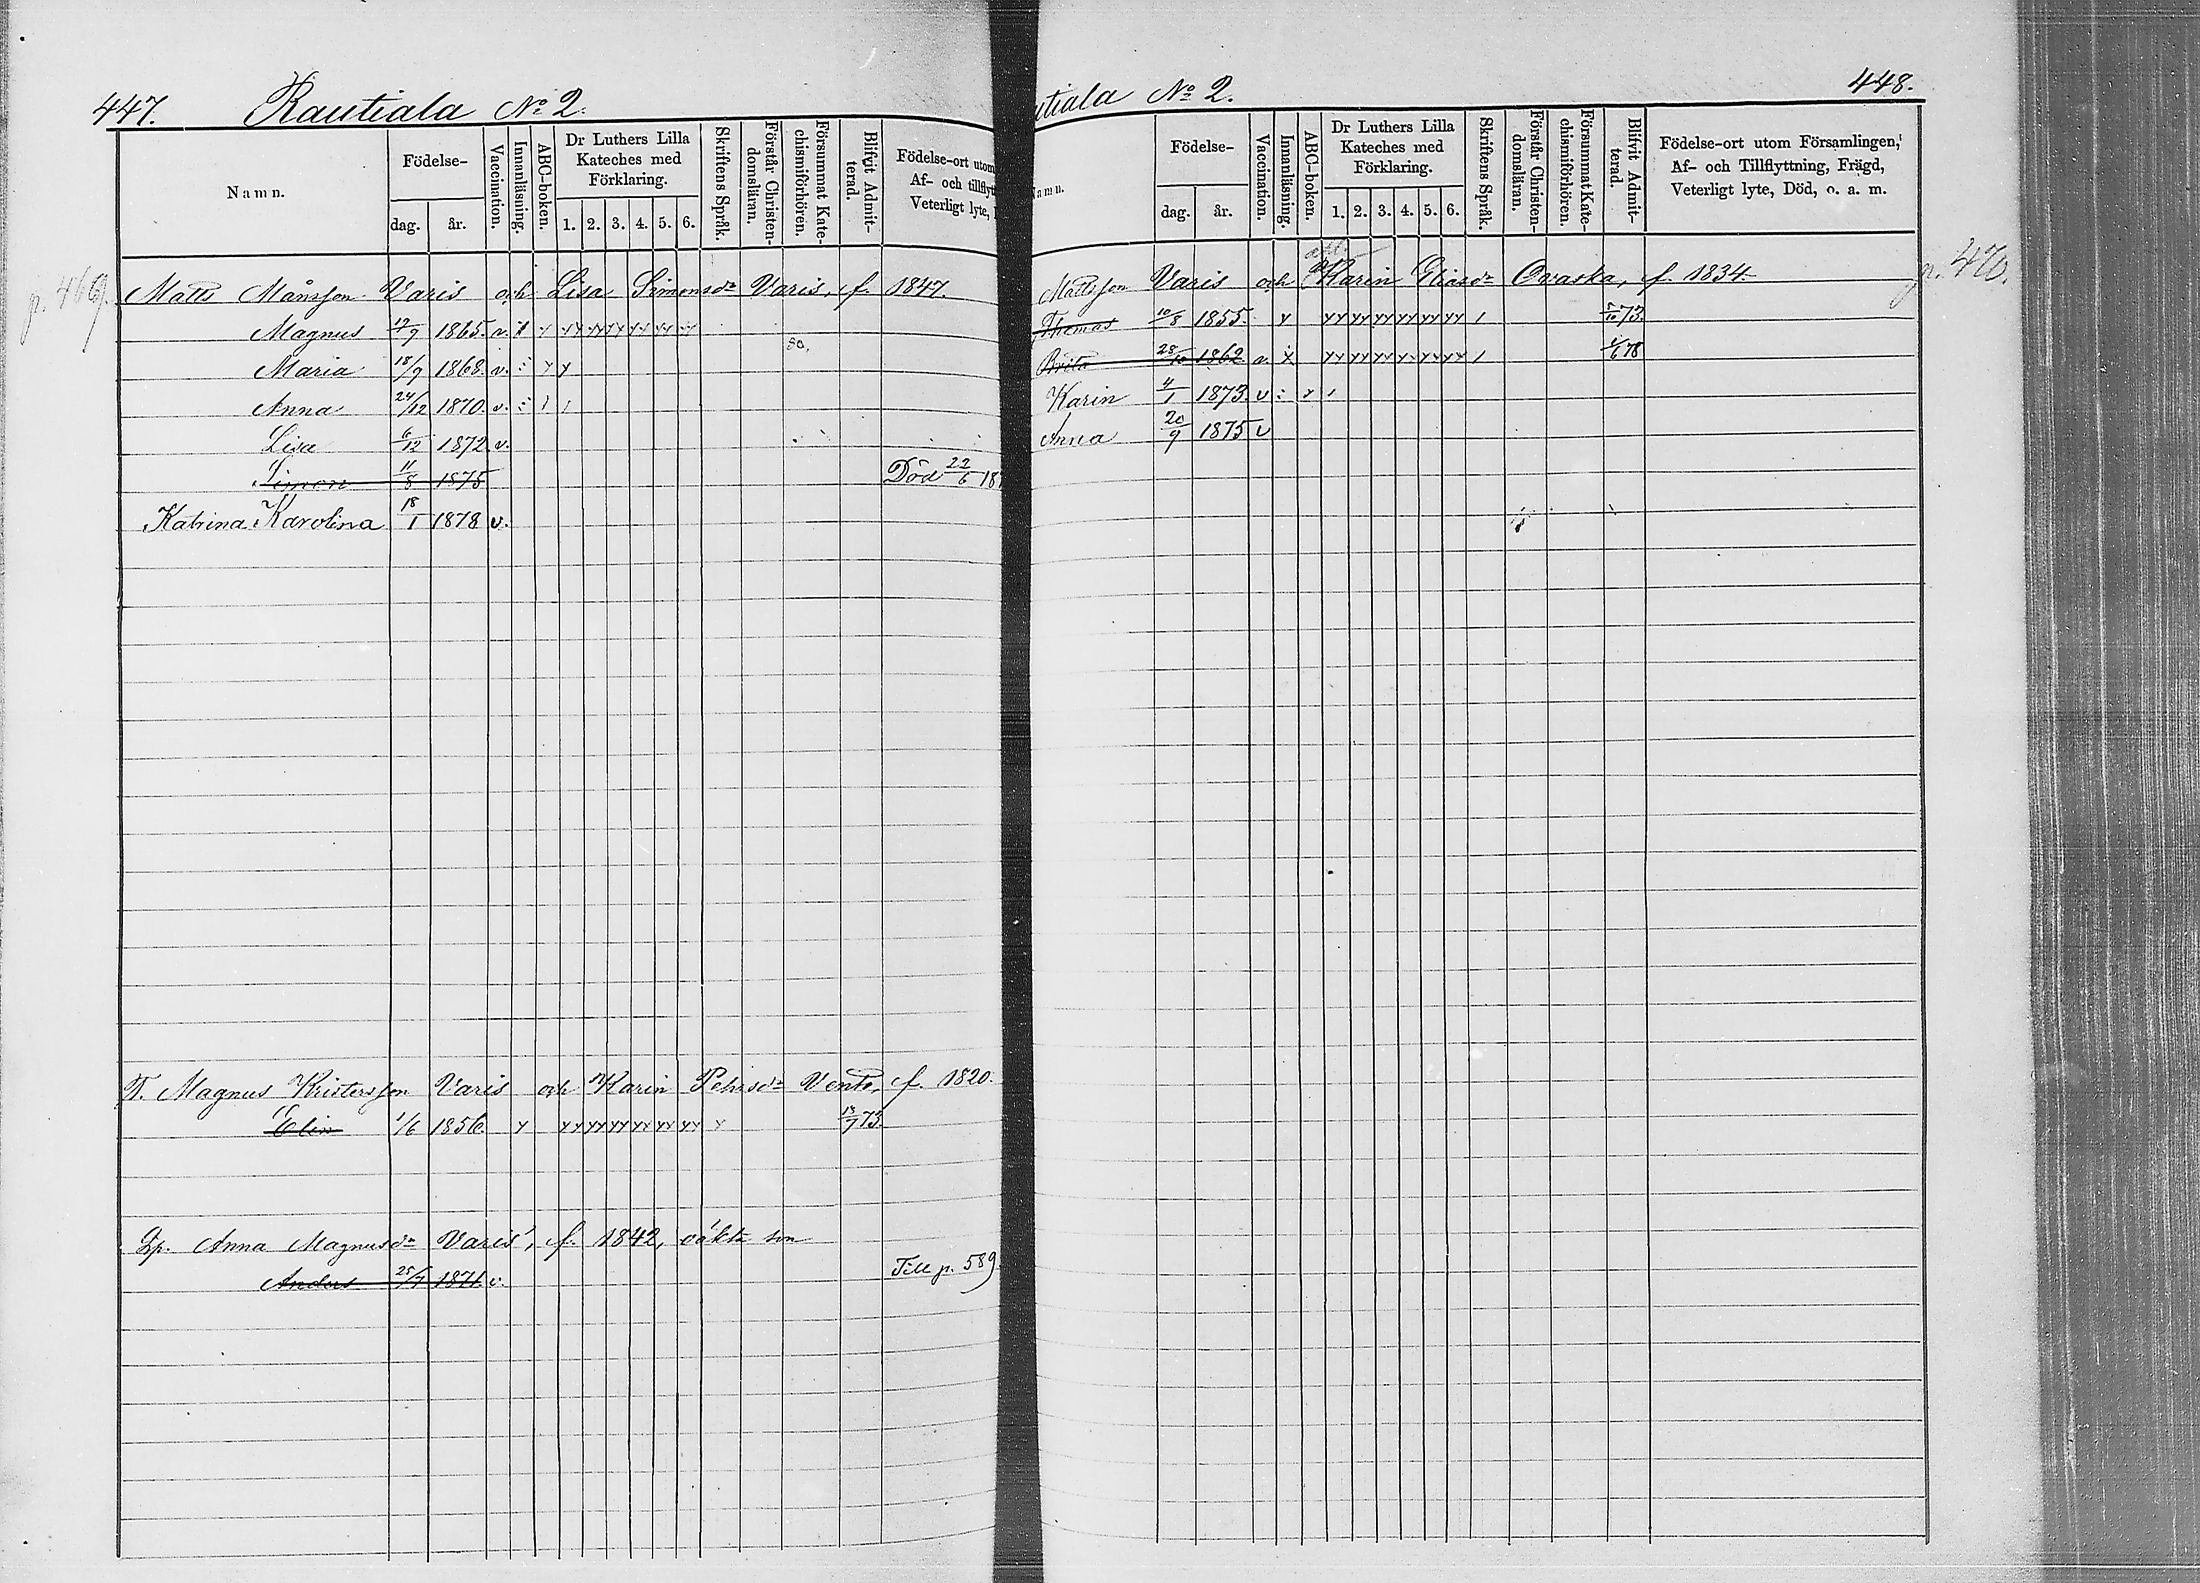 447. Rautiala No 2.
Namn. Födelse- dag. år. Vaccination. Innanläsning. ABC-boken. Dr Luthers Lilla Kateches med Förklaring. 1. 2. 3. 4. 5. 6. Skriftens Språk. Förstår Christendomsläran. Försummat Katechismiförhören. Blifvit Admitterad. Födelse-ort utom Af- och tillflytt Veterligt lyte,
p. 469. Matts Månsson Varis och Lisa Simonsdr Varis, f. 1847.
Magnus 1865. v.
80.
Maria 18/9 1868. v.
Anna 24/12 1870. v.
Lisa 6/12 1872 v.
Simon 11/8 1875 Död 22/6 18
Katrina Karolina 18/1 1878 v.
T. Magnus Kristersson Varis och Karin Pehrsdr Vento, f. 1820.
Elin 1/6 1856 13/7 73.
Lp. Anna Magnusdr Varis, f. 1842, oäkta son
Anders 25/7 1871. v. Till p. 589
utiala No 2. 448.
Namn. Födelse- dag. år. Vaccination. Innanläsning. ABC-boken. Dr Luthers Lilla Kateches med Förklaring. 1. 2. 3. 4. 5. 6. Skriftens Språk. Förstår Christendomsläran. Försummat Katechismiförhören. Blifvit Admitterad. Födelse-ort utom Församlingen, Af- och Tillflyttning, Frägd, Veterligt lyte, Död, o. a. m.
Mattsson Varis och Karin Eliasdr Ovaska, f. 1834. p. 470.
Thomas 10/8 1855. 5/10 73.
Brita 28/10 1862 v. 78
Karin 4/1 1873 v
Anna 20/9 1875 v